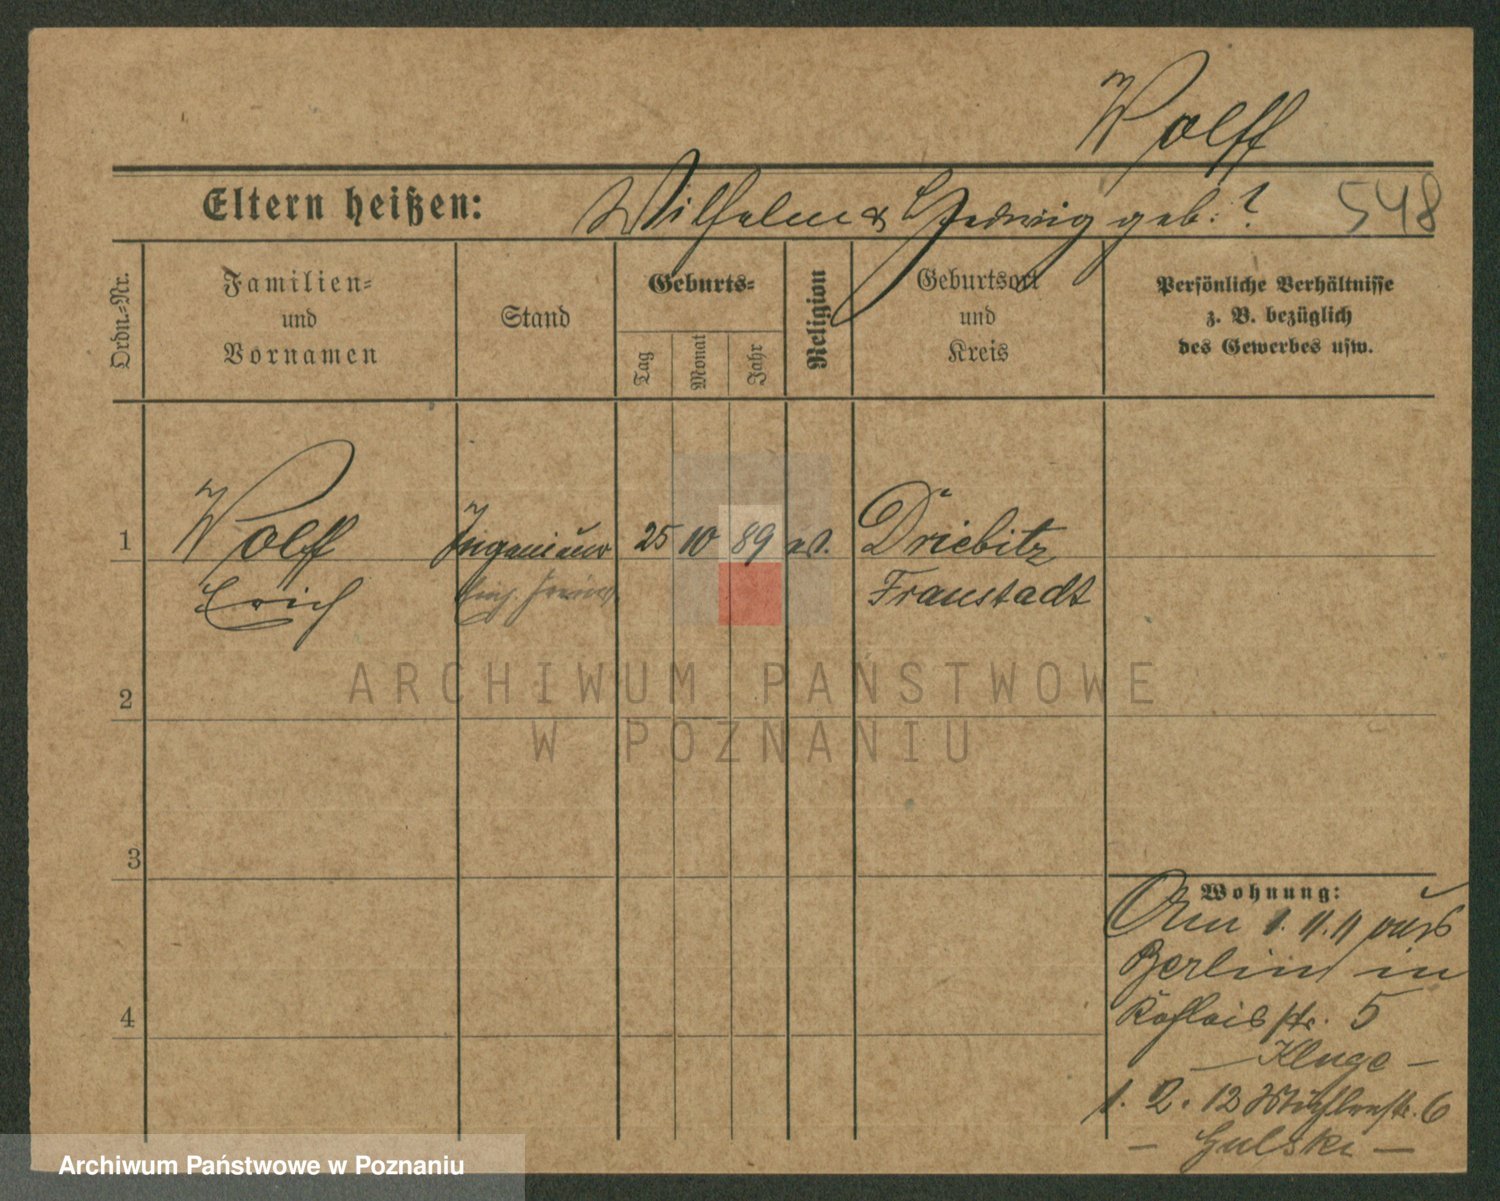 Wolff
Eltern heißen: Wilhelm & Hedwig geb. ? 548
Ordn.-Nr.
Familien-
und
Vornamen
Stand
Geburts-
Tag
Monat
Jahr
Religion
Geburtsort
und
Kreis
Persönliche Verhältnisse
z. B. bezüglich
des Gewerbes usw.
1 Wolff Ingenieur 25 10 89 ev. Driebitz
Erich Fraustadt
2
3
4
Wohnung:
Am 1.11.11 aus
Berlin in
str. 5
- Kluge -
1. 2. 12 Mühlenstr. 6
- Gulski -
ARCHIWUM PAŃSTWOWE
W POZNANIU
Archiwum Państwowe w Poznaniu